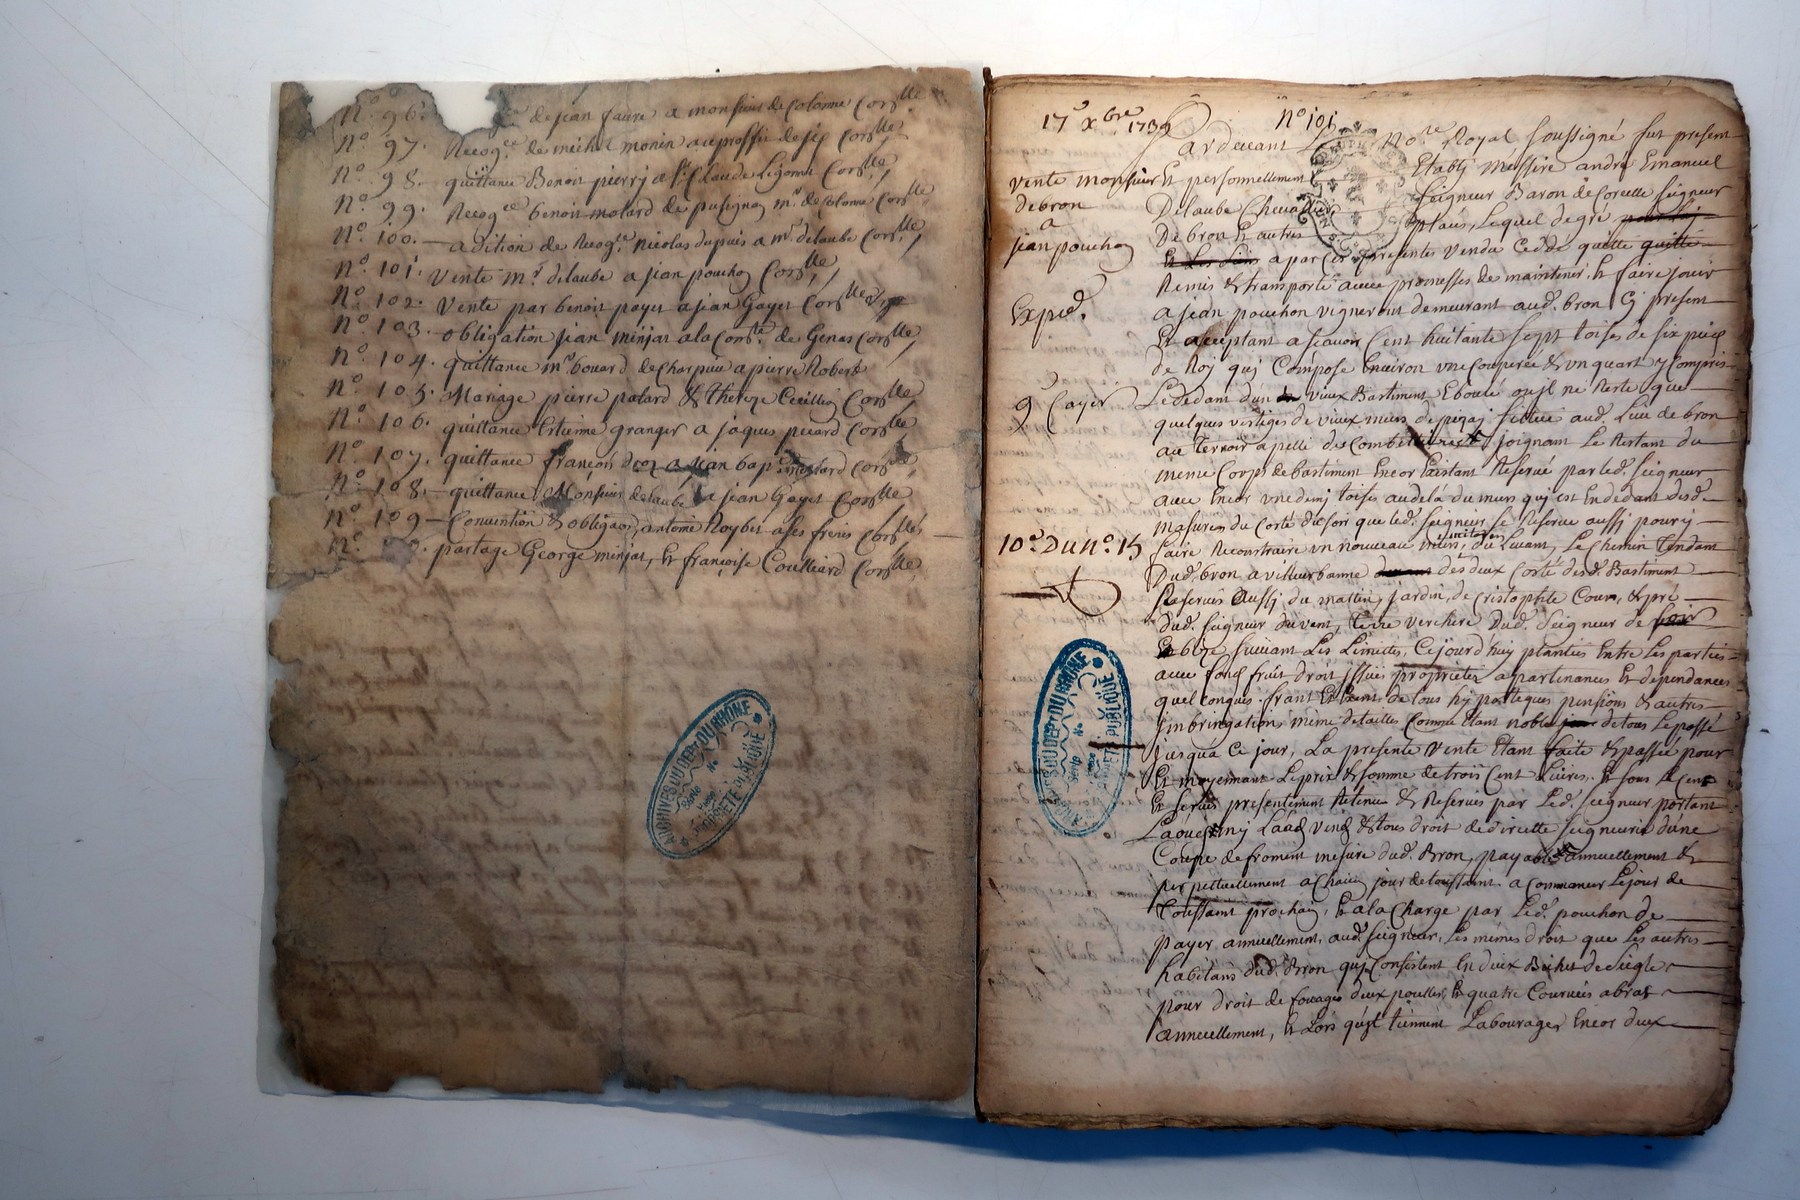 N.º 96. de jean faure a monsieur de Colonne Cors.lle
N.º 97. Recog.ce de michel monin au proffit de Corslle
N.º 98. quittance Benoit pierry a s.r Claude Corslle
N.º 99. Recog.ce benoit molard de pusignan m.r de Colonne Corslle
N.º 100. adition de Recog.ce Nicolas dupuis a m.r delaube Corslle
N.º 101. Vente m.r delaube a jean pouchon Corslle
N.º 102. Vente par benoit payet a jean Gayet Corslle
N.º 103. obligation jean minjat a la Com.té de Genas Corslle
N.º 104. quittance m.r bouard de Charpieu a pierre Robert
N.º 105. Mariage pierre patard & Thereze Corslle
N.º 106. quittance Estienne granger a jaques picard Corslle
N.º 107. quittance françois a jean bap.te Corslle
N.º 108. quittance Monsieur delaube a jean Gayet Corslle
N.º 109 Convention & obligaon, antoine Roybet a ses freres Corslles
partage George minjat, & françoise Couilliard Corslle
ARCHIVES DU DEPT DU RHÔNE
Série
No
PROPRIÉTÉ PUBLIQUE
17.e Xbre 1739
N.º 101
Pardevant Le No.re Royal soussigné fut present
Et personnellement Etably Messire andré Emanuel
Delaube Chevalier Seigneur Baron de Corcelle seigneur
De bron & autres places, Lequel de gré pour luy
Et Les siens a par Ces presentes vendu Cedé quitté quitté
Remis & transporté avec promesses de maintenir & faire jouir
a jean pouchon vigneron demeurant aud. bron Cy present
Et acceptant a scavoir Cent huitante sept toises de six pieds
de Roy qui Compose Environ une Couperée & un quart y Compris
Le dedans d'un vieux Bastiment Eboulé ou il ne Reste que
quelques vestiges de vieux murs de pizay situé aud. Lieu de bron
au terroir apellé de joignant Le Restant du
meme Corps de bastiment Encor Existant Reservé par led. seigneur
avec Encor une demy toise au dela du murs qui est En dedant desd.
masures du Corté du soir que led. seigneur se Reserve aussy pour y
faire Reconstruire un nouveau murs, mitoyen du Levant, Le Chemin Tendant
Dud. bron a villeurbanne des deux Corté desd. Bastiment
Reservés aussy du mattin, jardin, de Cristophle Cour, & pré
dud. seigneur du vent, terre verchere Dud. seigneur de soir
& bize suivant Les Limittes, Cejourd'huy plantées Entre Les parties
avec fond fruit droit issües proprietés apartenances & dependances
quelconques franc Et Exent de tous hypotteques pensions & autres
jusqua Ce jour, La presente Vente Etant faite & passée pour
Et moyennant Le prix & somme de trois Cent Livres, Et sous Le Cens
Et Servis presentement Retenu & Reservés par Led. seigneur portant
Laods vends & tous droit de directte seigneurie d'une
Coupe de froment mesure dud. Bron, payable annuellement &
perpettuellement a Chaque jour de toussaint a Commancer Le jour de
Toussaint prochain, Et a la Charge par Led. pouchon de
payer annuellement, aud. seigneur, Les mémes droit que Les autres
habitans dud. Bron qui Consistent En deux Bichet de seigle
pour droit de fouages deux poulles, & quatre Courvées a bras
annuellement, & Lors qu'il tiennent Labourages Encor deux
vente monsieur
de bron
a
jean pouchon
Exped.
9 Cayer
10.e Du N.º 15
ARCHIVES DU DEPT DU RHÔNE
Série
No
PROPRIÉTÉ PUBLIQUE